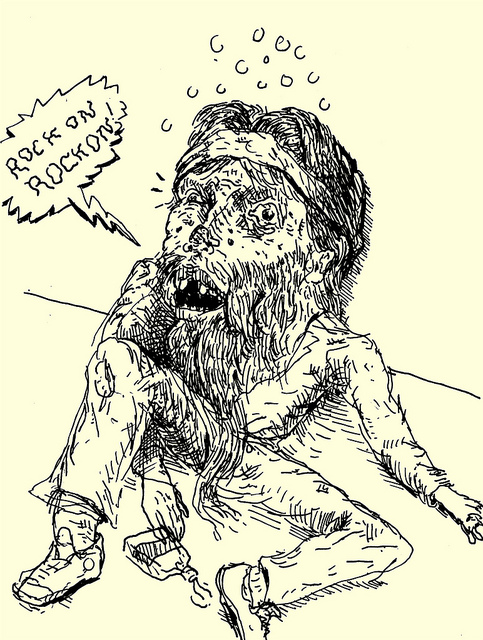 ROCK ON'
ROCK ON'!